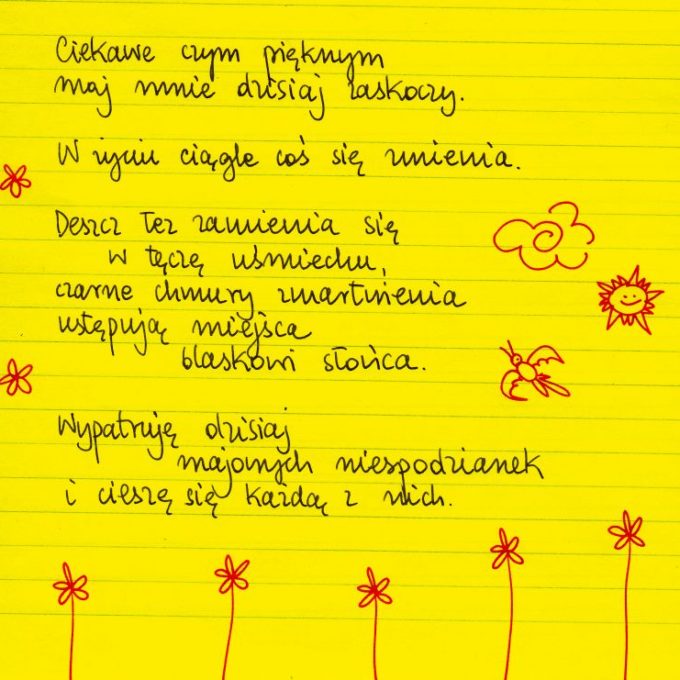 Ciekawe czym pięknym
maj mnie dzisiaj zaskoczy.
W życiu ciągle coś się zmienia.
Deszcz też zamienia się
w tęczę uśmiechu,
czarne chmury zmartwienia
ustępują miejsca
blaskowi słońca.
Wypatruję dzisiaj
majowych niespodzianek
i cieszę się każdą z nich.